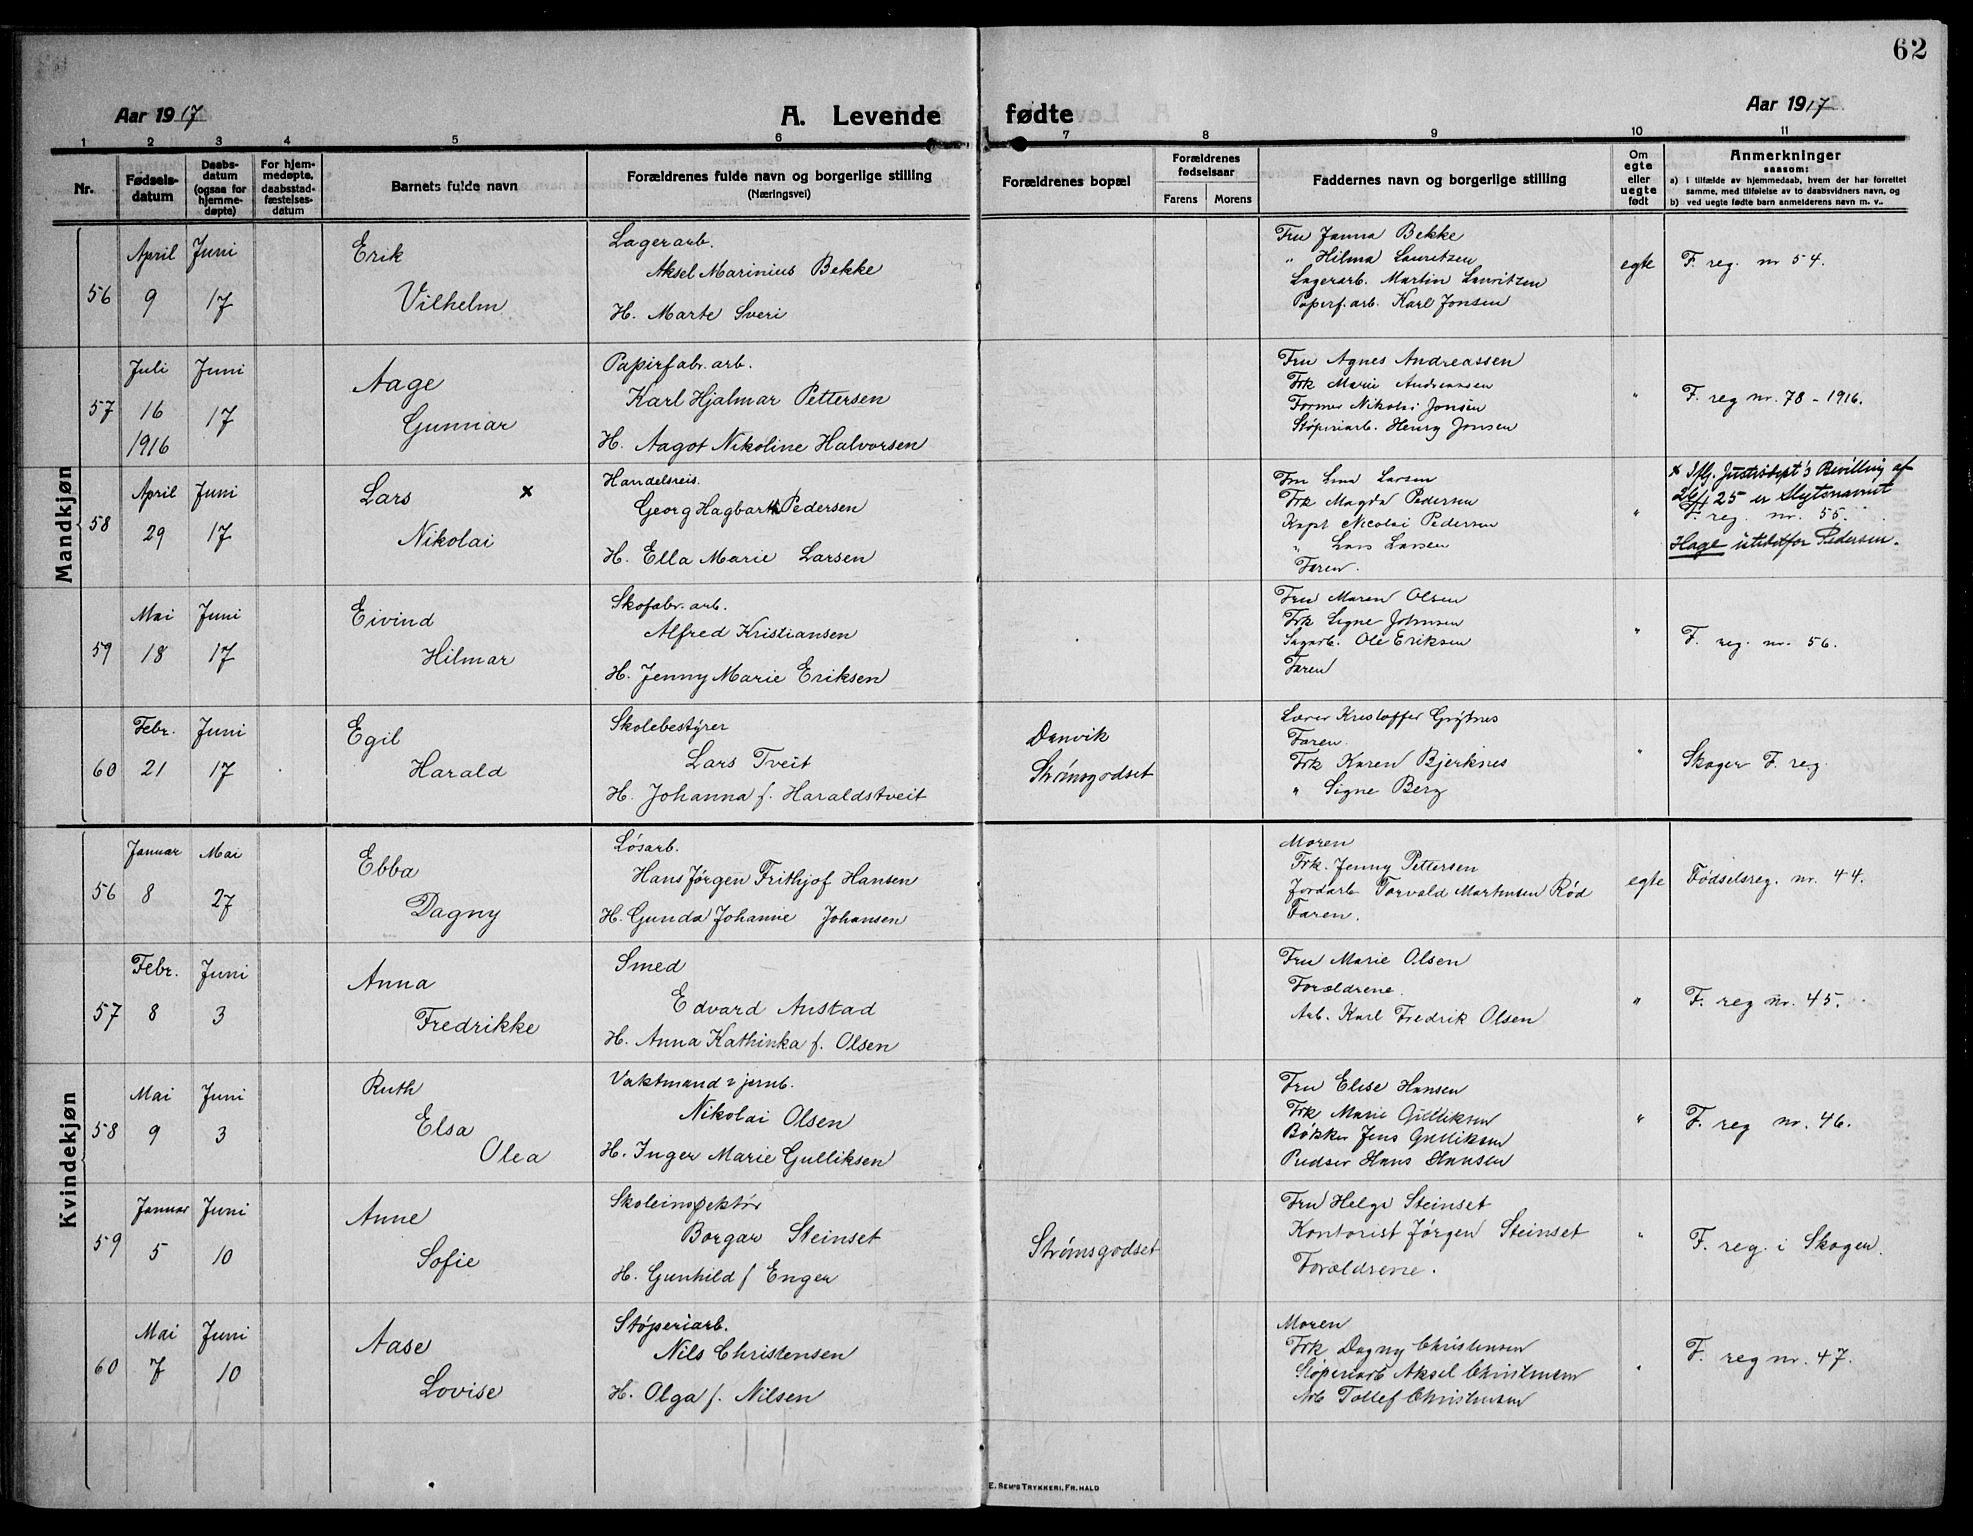 62
Aar 1917 A. Levende fødte Aar 1917
1 2 3 4 5 6 7 8 9 10 11
Nr.
Fødsels-
datum
Daabs-
datum
(ogsaa for
hjemme-
døpte)
For hjem-
medøpte,
daabsstad-
fæstelses-
datum
Barnets fulde navn
Forældrenes fulde navn og borgerlige stilling
(Næringsvei)
Forældrenes bopæl
Forældrenes
fødselsaar
Farens Morens
Faddernes navn og borgerlige stilling
Om
egte
eller
uegte
født
Anmerkninger
saasom:
a) i tilfælde av hjemmedaab, hvem der har forrettet
samme, med tilføielse av to daabsvidners navn, og
b) ved uegte fødte barn anmelderens navn m. v..
Mandkjøn
56
April
9
Juni
17
Erik
Vilhelm
Lagerarb.
Aksel Marinius Bekke
H. Marte Sveri
Fru Janna Bekke
" Hilma Lauritzen
Lagerarb. Martin Lauritzen
Papirf. arb. Karl Jonsen
egte
F. reg. nr 54.
57
Juli
16
1916
Juni
17
Aage
Gunnar
Papirfabr. arb.
Karl Hjalmar Pettersen
H. Aagot Nikoline Halvorsen
Fru Agnes Andreassen
Frk Marie Andreassen
Former Nikolai Jonsen
Støperiarb. Henry Jonsen
"
F. reg nr. 78 - 1916.
58
April
29
Juni
17
Lars x
Nikolai
Handelsreis.
Georg Hagbarth Pedersen
H. Ella Marie Larsen
Fru Lina Larsen
Frk Magda Pedersen
Kapt Nicolai Pedersen
" Lars Larsen
Faren.
"
x Iflg. Justisdept's Bevilling af
26/11 25 er Slegtsnavnet
F. reg. nr. 55.
Hage istedetfor Pedersen.
59
Mai
18
Juni
17
Eivind
Hilmar
Skofabr. arb.
Alfred Kristiansen
H. Jenny Marie Eriksen
Fru Maren Olsen
Frk Signe Johnsen
Sagarb. Ole Eriksen
Faren
"
F. reg. nr. 56.
60
Febr.
21
Juni
17
Egil
Harald
Skolebestyrer
Lars Tveit
H. Johanna f. Haraldstveit
Danvik
Strømsgodset
Lærer Kristoffer Grytnes
Faren.
Frk Karen Bjerknes
" Signe Berg
"
Skoger F. reg.
Kvindekjøn
56
Januar
8
Mai
27
Ebba
Dagny
Løsarb.
Hans Jørgen Frithjof Hansen
H. Gunda Johanne Johansen
Moren
Frk. Jenny Pettersen
Jordarb Torvald Martinsen Rød
Faren.
egte
Fødselsreg. nr. 44.
57
Febr.
8
Juni
3
Anna
Fredrikke
Smed
Edvard Austad
H. Anna Kathinka f. Olsen
Fru Marie Olsen
Forældrene.
Arb. Karl Fredrik Olsen
"
F. reg nr. 45.
58
Mai
9
Juni
3
Ruth
Elsa
Olea
Vaktmand v jernb.
Nikolai Olsen
H. Inger Marie Gulliksen
Fru Elise Hansen
Frk Marie Gulliksen
Bøkker Jens Gulliksen
Pudser Hans Hansen
"
F. reg nr. 46.
59
Januar
5
Juni
10
Anne
Sofie
Skoleinspektør
Borgar Steinset
H. Gunhild f Enger
Strømsgodset
Fru Helga Steinset
Kontorist Jørgen Steinset
Forældrene.
"
F. reg. i Skoger.
60
Mai
7
Juni
10
Aase
Lovise
Støperiarb.
Nils Christensen
H. Olga f. Nilsen
Moren
Frk Dagny Christensen
Støperiarb Aksel Christensen
Arb Tollef Christensen
"
F. reg nr. 47.
E. SEM'S TRYKKERI, FR. HALD